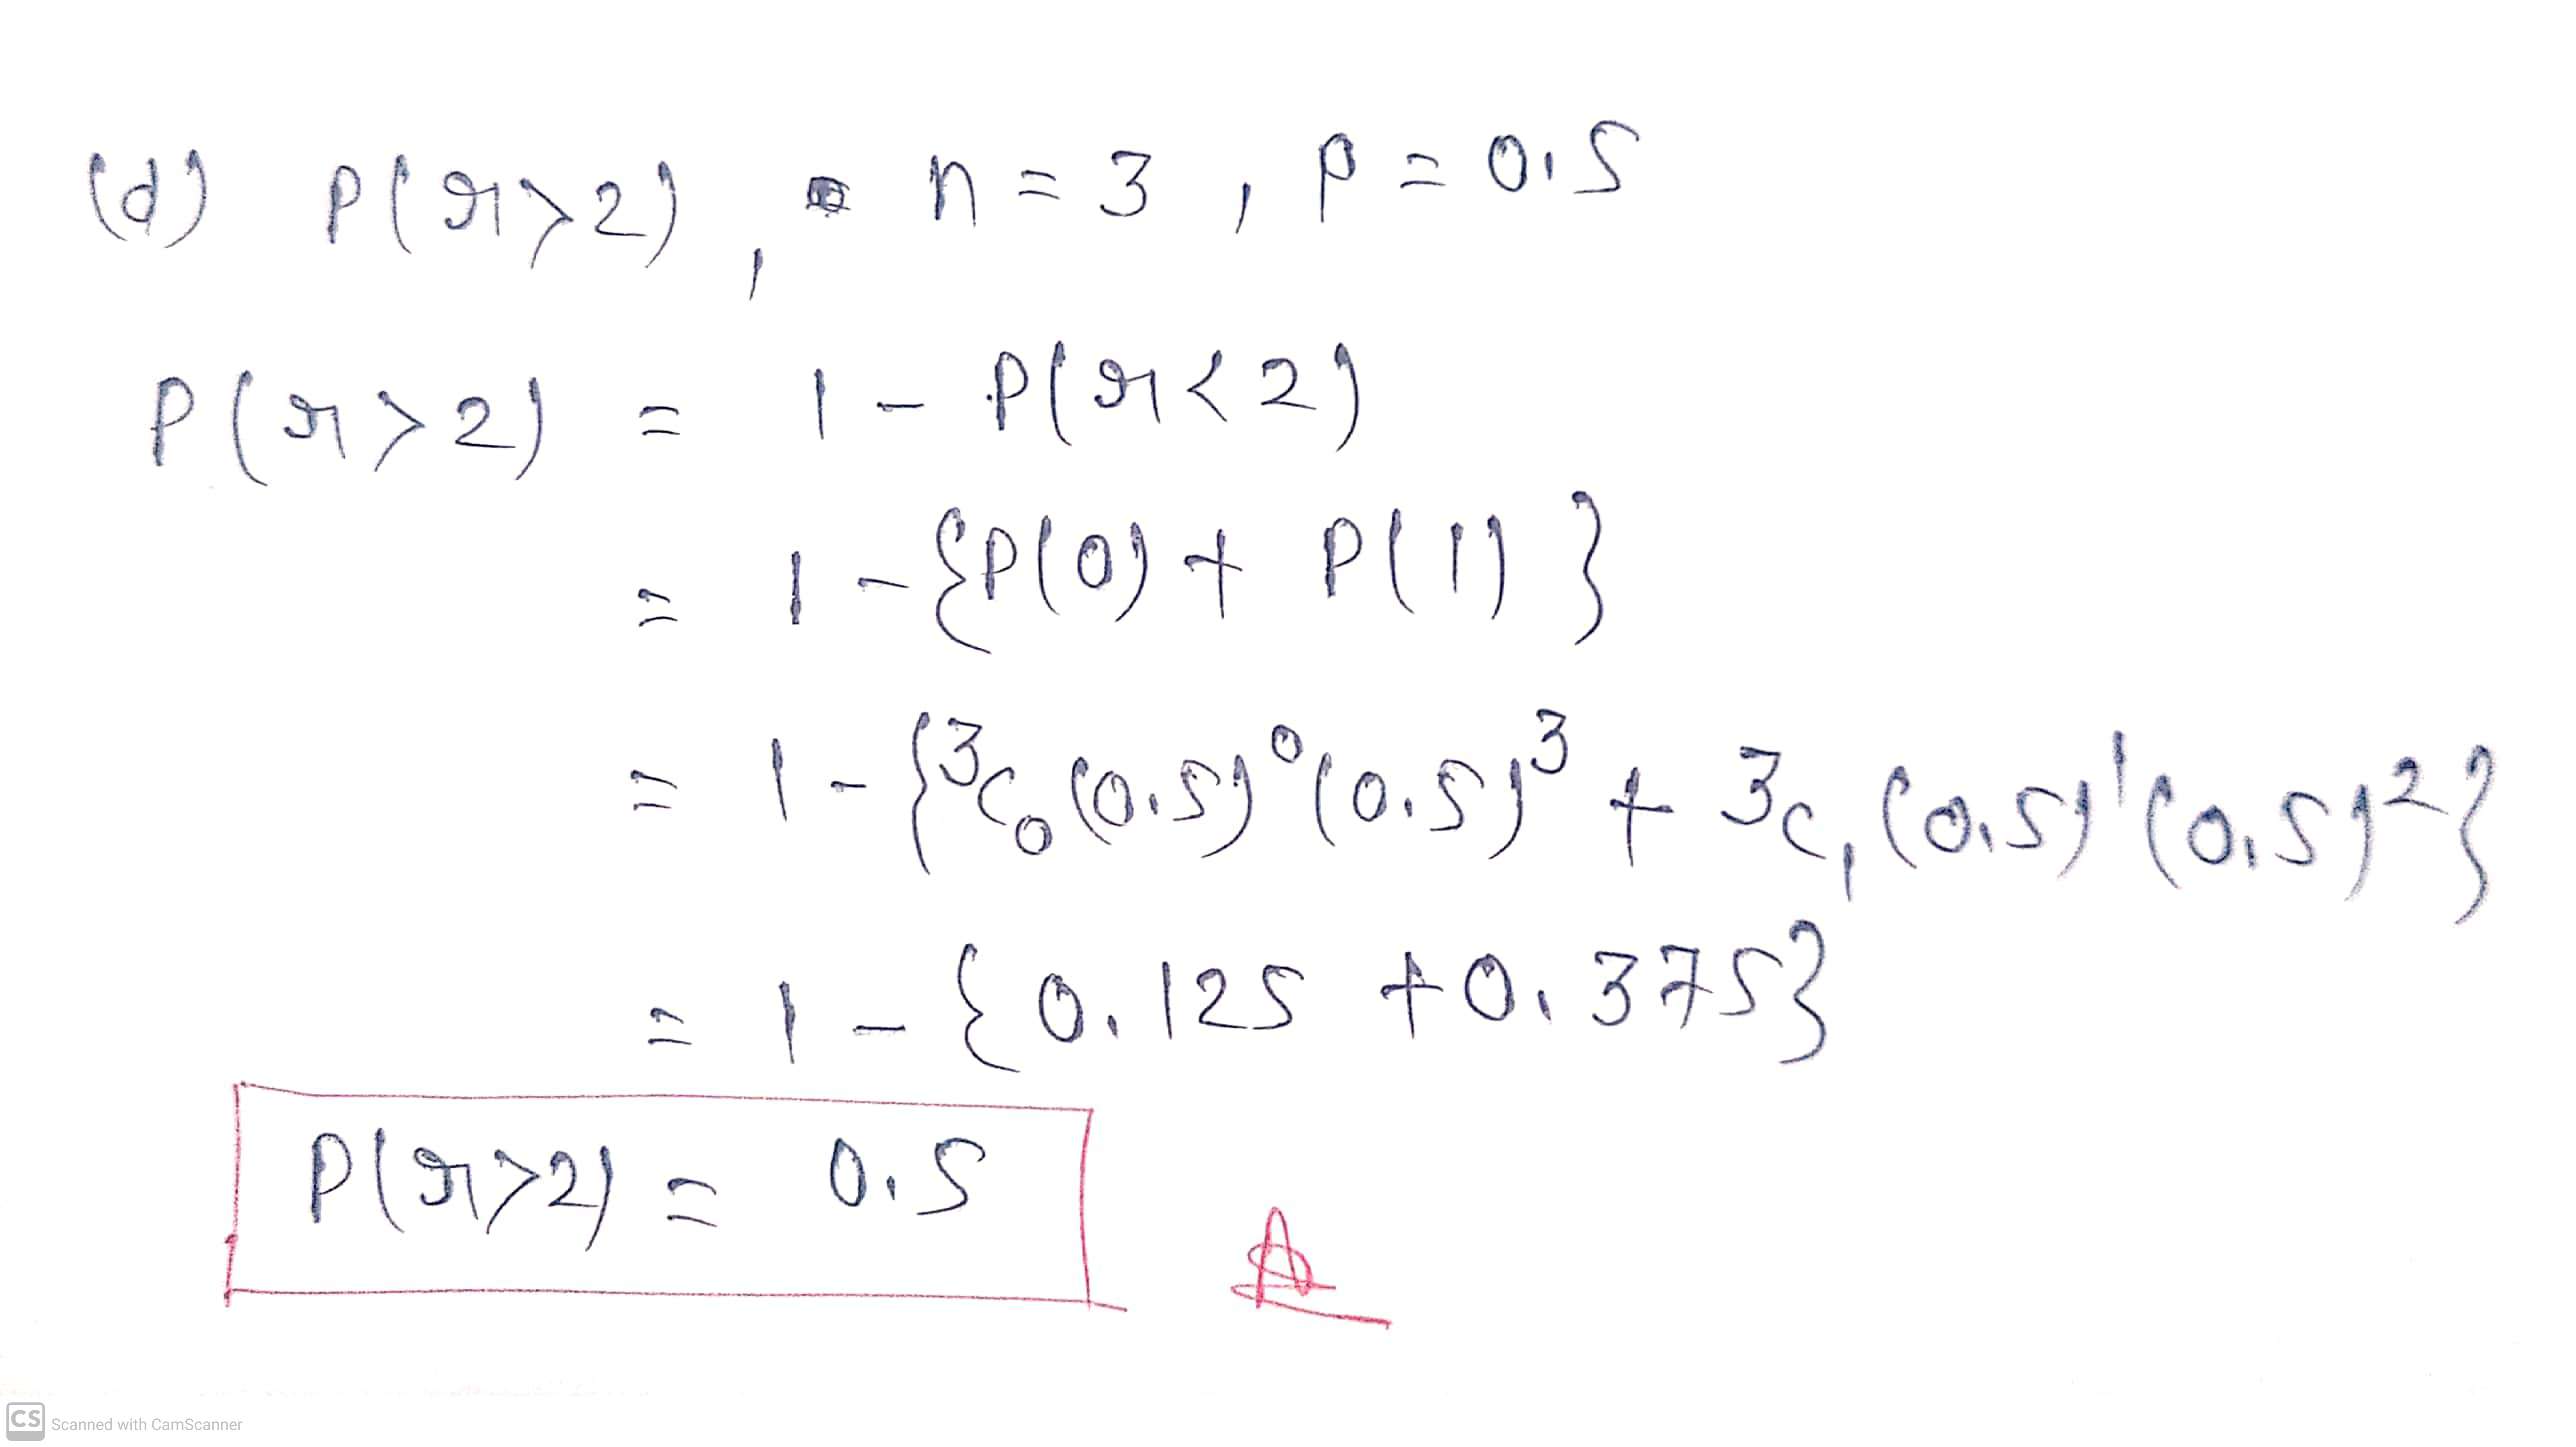 (d) P(r>2), n = 3, p = 0.5
P(r>2) = 1 - P(r<2)
= 1 - {P(0) + P(1)}
= 1 - {³C₀ (0.5)⁰ (0.5)³ + ³C₁ (0.5)¹ (0.5)²}
= 1 - {0.125 + 0.375}
P(r>2) = 0.5
CS Scanned with CamScanner